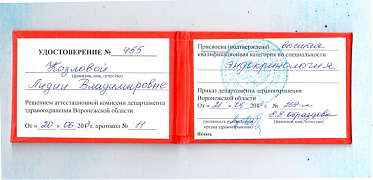 УДОСТОВЕРЕНИЕ № 455
Козловой
(фамилия, имя, отчество)
Лидии Владимировне
Решением аттестационной комиссии департамента
здравоохранения Воронежской области
От «20» 06 2013г протокол № 11
Присвоена (подтверждена) высшая
квалификационная категория по специальности
эндокринология
Приказ департамента здравоохранения
Воронежской области
От «21» 06 2013г №
(должность руководителя
органа здравоохранения)
(фамилия, имя, отчество)
Печать